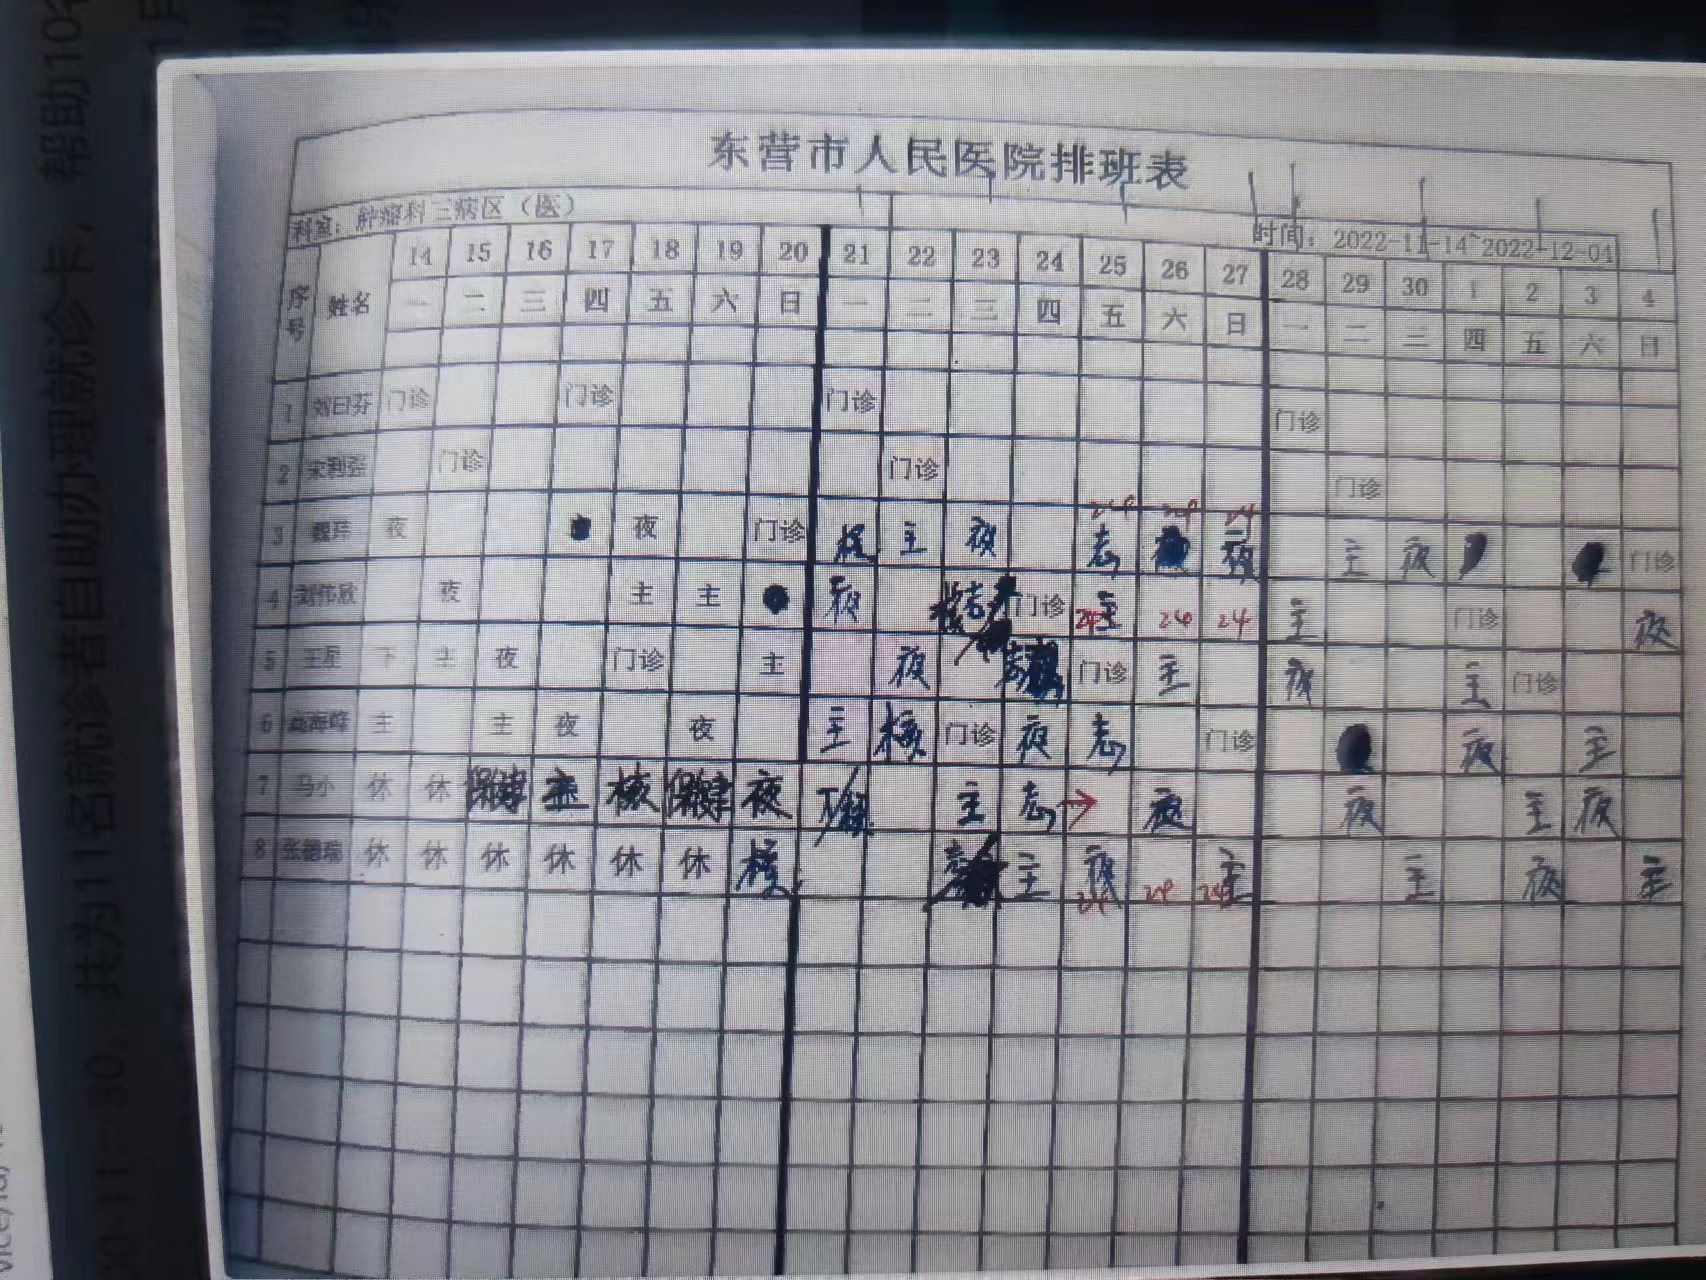 东营市人民医院排班表
科室：肿瘤科三病区（医）
时间：2022-11-14~2022-12-04
序号 姓名 14 15 16 17 18 19 20 21 22 23 24 25 26 27 28 29 30 1 2 3 4
一 二 三 四 五 六 日 一 二 三 四 五 六 日 一 二 三 四 五 六 日
1 刘曰芬 门诊 门诊 门诊 门诊
2 宋利强 门诊 门诊 门诊
24 24 24
3 魏玮 夜 夜 门诊 核 主 夜 志 夜 主 夜 门诊
4 刘伟欣 夜 主 主 夜 门诊 24 主 24 24 主 门诊 夜
5 王星 下 主 夜 门诊 主 夜 门诊 主 夜 主 门诊
6 高海峰 主 主 夜 夜 主 核 门诊 夜 志 门诊 夜 主
7 马小 休 休 保健 核 保健 夜 主 志 → 夜 夜 主 夜
8 张德瑞 休 休 休 休 休 休 核 主 夜 主 主 夜 主
24 24 24
共为11名就诊者自助办理就诊卡，帮助10